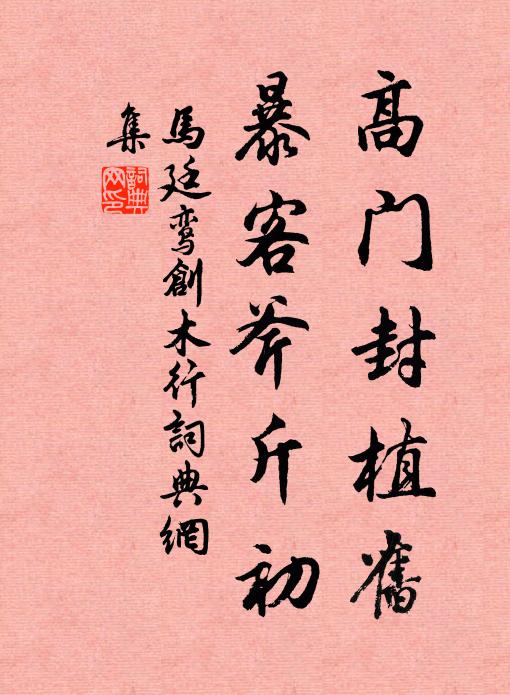 高门封植舊
暴客斧斤初
馬廷鸾創木行詞典網
集
詞典
网印